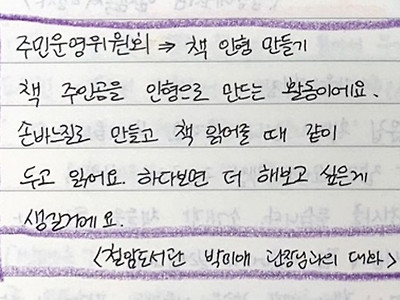 주민운영위원회 ⇒ 책 인형 만들기
책 주인공을 인형으로 만드는 활동이에요.
손바느질로 만들고 책 읽어줄 때 같이
두고 읽어요. 하다보면 더 해보고 싶은게
생길거에요.
<철암도서관 박미애 관장님과의 대화>